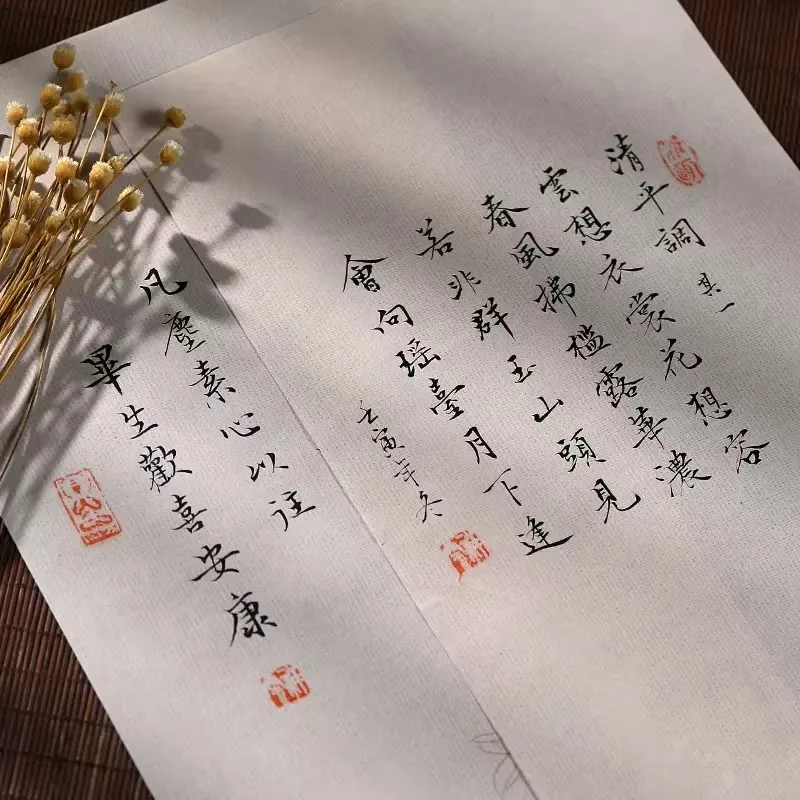 清平調 其一
雲想衣裳花想容
春風拂檻露華濃
若非群玉山頭見
會向瑶臺月下逢
壬寅年冬
凡塵素心以往
畢生歡喜安康